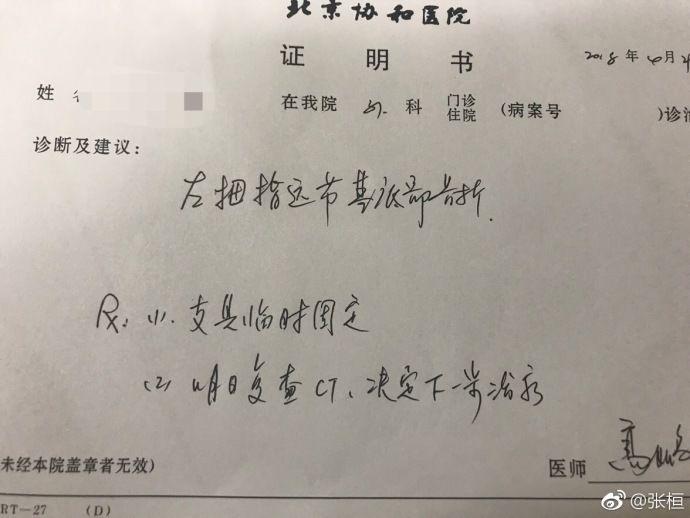 北京协和医院
证 明 书
2018 年 4 月
姓
在我院 外 科 门诊 住院 (病案号 )诊治
诊断及建议:
左拇指远节基底部骨折.
Rx: (1). 支具临时固定
(2) 明日复查CT、决定下一步治疗
未经本院盖章者无效)
医师 高
RT-27 (D)
@张桓